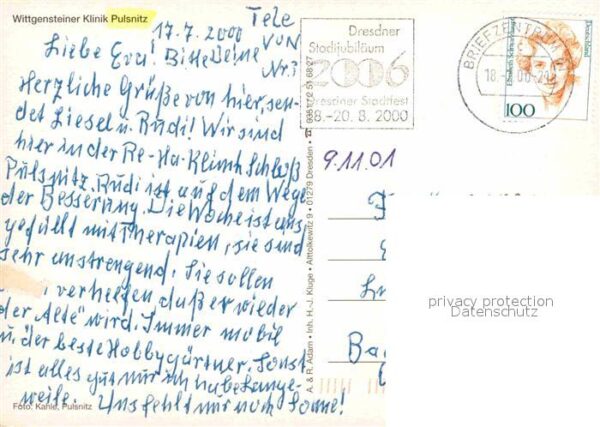 Wittgensteiner Klinik Pulsnitz
17.7.2000 Tele
Liebe Eva! Bitte Deine VON
Nr.?
Herzliche Grüße von hier, sen-
det Liesel u. Rudi! Wir sind
hier in der Re-Ha-Klinik Schloß
Pulsnitz. Rudi ist auf dem Wege
der Besserung. Die Woche ist aus
gefüllt mit Therapien, sie sind
sehr anstrengend. Sie sollen
verhelfen, daß er wieder
"der Alte" wird. Immer mobil
u. der beste Hobbygärtner. Sonst
ist alles gut nur ich habe Lange-
weile. Uns fehlt nur noch Sonne!
Foto: Kahle, Pulsnitz
A. & R. Adam • Inh. H.-J. Kluge • Alttolkewitz 9 • 01279 Dresden
Dresdner
Stadtjubiläum
2006
Dresdner Stadtfest
18.-20. 8. 2000
BRIEFZENTRUM
18.
100
Deutschland
9.11.01
Ba
privacy protection
Datenschutz